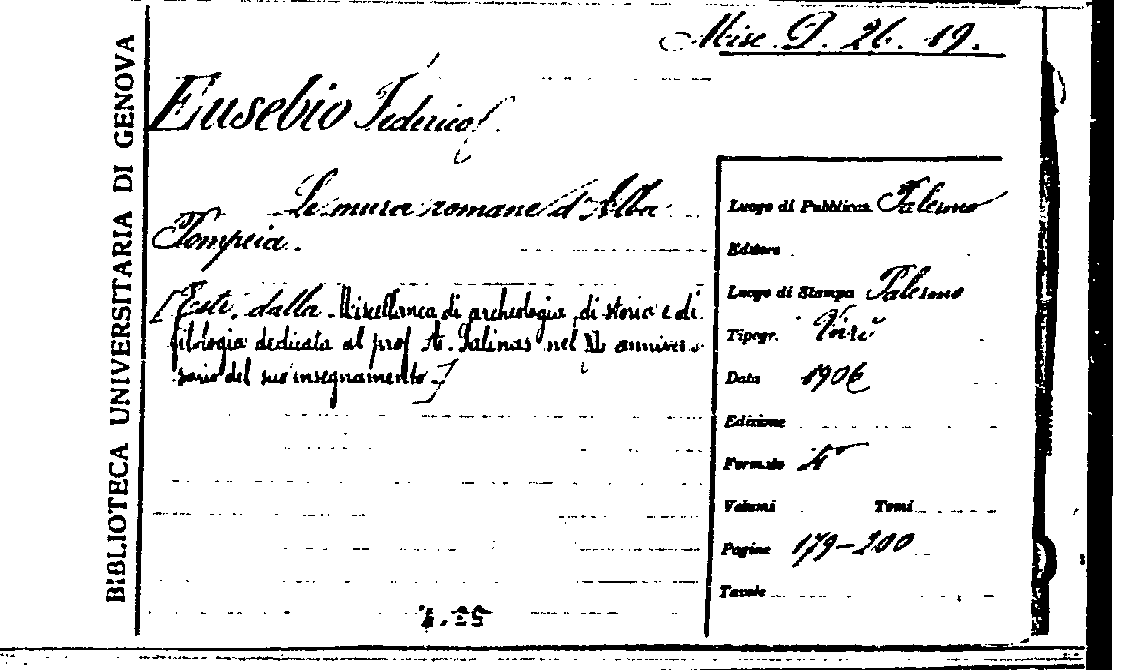 BIBLIOTECA UNIVERSITARIA DI GENOVA
Misc. D. 26. 19.
Eusebio Federico
Le mura romane d'Alba
Pompeia.
[Estr. dalla Miscellanea di archeologia, di storia e di
filologia dedicata al prof. A. Salinas nel XL anniver-
sario del suo insegnamento]
Luogo di Pubblicaz. Palermo
Editore
Luogo di Stampa Palermo
Tipogr. Virzì
Data 1906
Edizione
Formato 4°
Volumi Tomi
Pagine 179-200
Tavole